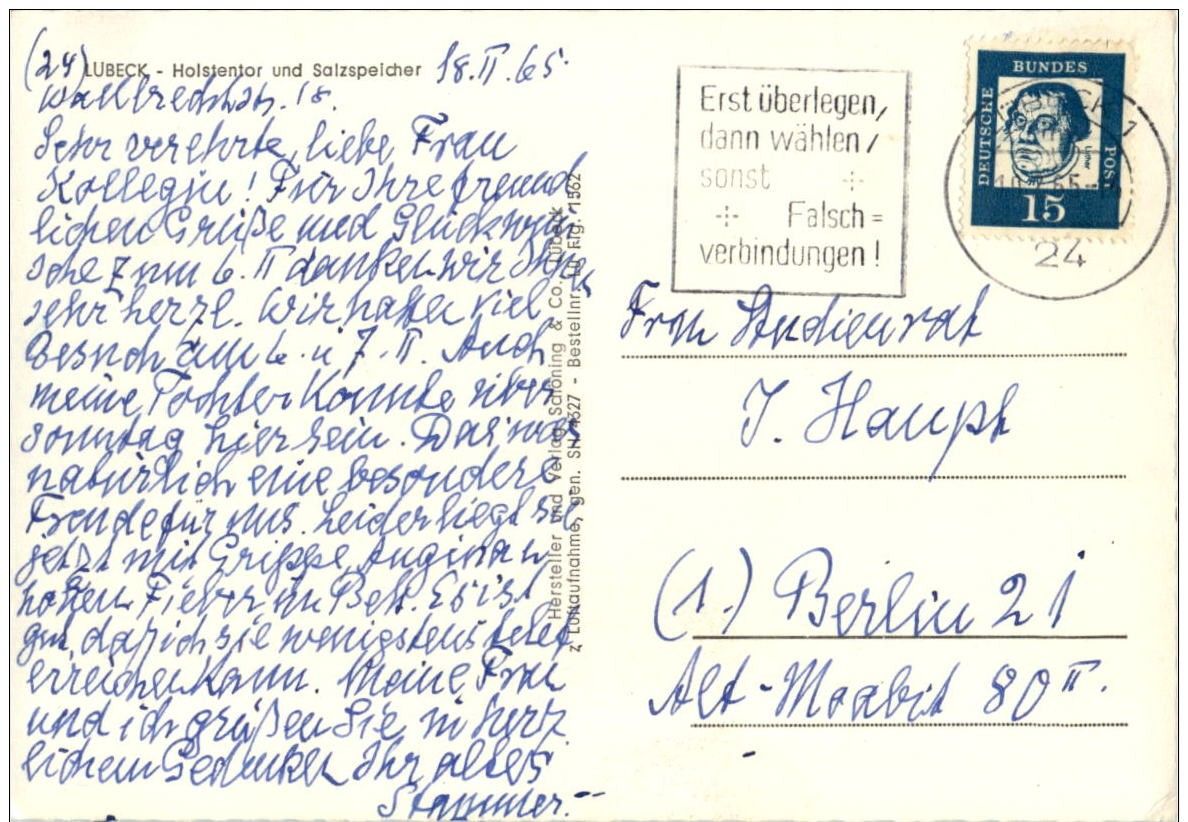 (24) LÜBECK - Holstentor und Salzspeicher 18.II.65.
18.
Sehr verehrte, liebe Frau
Kollegin! Für Ihre freund
lichen Grüße und Glückwün
sche zum 6. II danken wir Ihnen
sehr herzl. Wir hatten viel
Besuch am 6. u 7. II. Auch
meine Tochter konnte über
Sonntag hier sein. Das war
natürlich eine besondere
Freude für uns. Leider liegt sie
jetzt mit Grippe, Angina u
hohem Fieber im Bett. Es ist
gut, daß ich sie wenigstens telef
erreichen kann. Meine Frau
und ich grüßen Sie in herz
lichem Gedenken Ihr alter
Stammer.
Hersteller und Verlag Schöning & Co., Lübeck
Luftaufnahme, gen. SH 4327 - Bestellnr. Lü Flg. 1562
Erst überlegen,
dann wählen,
sonst
Falsch=
verbindungen!
DEUTSCHE
BUNDES
POST
Luther
15
24
Frau Studienrat
J. Haupt
(1.) Berlin 21
Alt-Moabit 80 II.